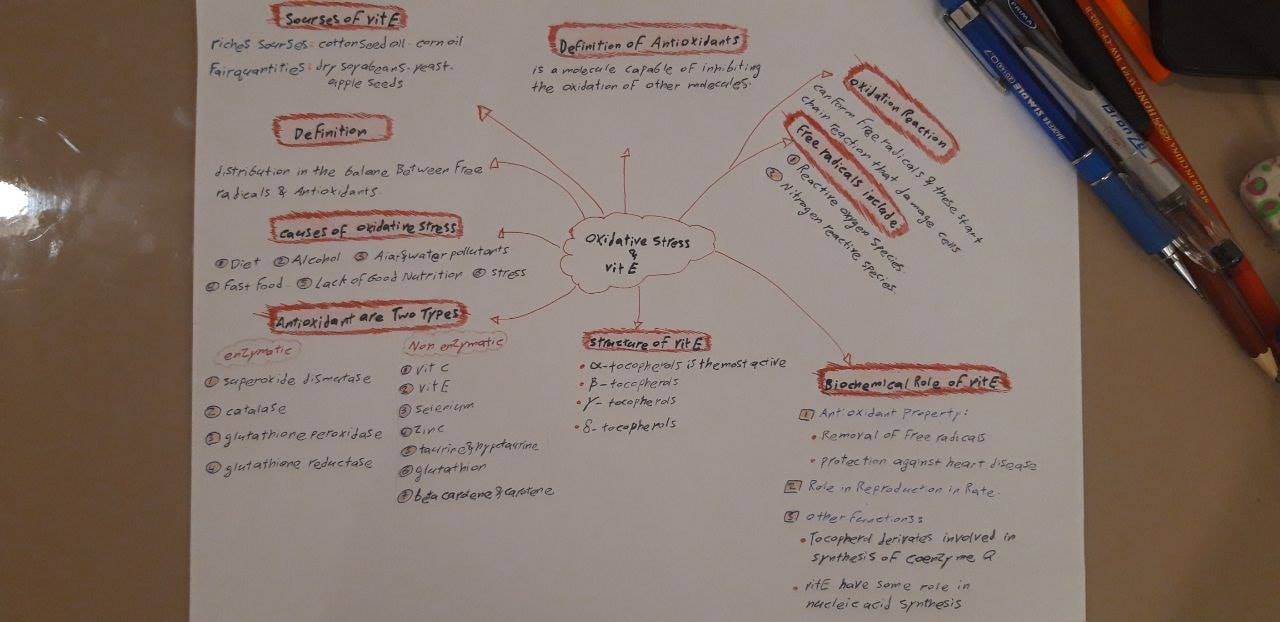 Sourses of vit E
riches sourses: cottonseed oil - corn oil
Fair quantities: dry soyabeans - yeast -
apple seeds
Definition of Antioxidants
is a molecule capable of inhibiting
the oxidation of other molecules.
Oxidation Reaction
can form free radicals & these start
chain reaction that damage cells
Free radicals include
① Reactive oxygen species
② Nitrogen reactive species.
Definition
distribution in the balane Between Free
radicals & Antioxidants
causes of oxidative stress
① Diet ② Alcohol ③ Aiar & water pollutants
④ Fast Food ⑤ Lack of Good Nutrition ⑥ stress
Oxidative stress
&
vit E
Antioxidant are Two Types
enzymatic
① superoxide dismutase
② catalase
③ glutathione peroxidase
④ glutathione reductase
Non enzymatic
① vit C
② vit E
③ selenium
④ zinc
⑤ taurine & hypotaurine
⑥ glutathion
⑦ beta cardene & carotene
structure of vit E
• α-tocopherols is the most active
• β-tocopherols
• γ-tocopherols
• δ-tocopherols
Biochemical Role of vit E
1 Antioxidant Property:
• Removal of free radicals
• protection against heart disease
2 Role in Reproduction in Rate.
3 other functions:
• Tocopherol derivates involved in
synthesis of coenzyme Q
• vit E have some role in
nucleic acid synthesis